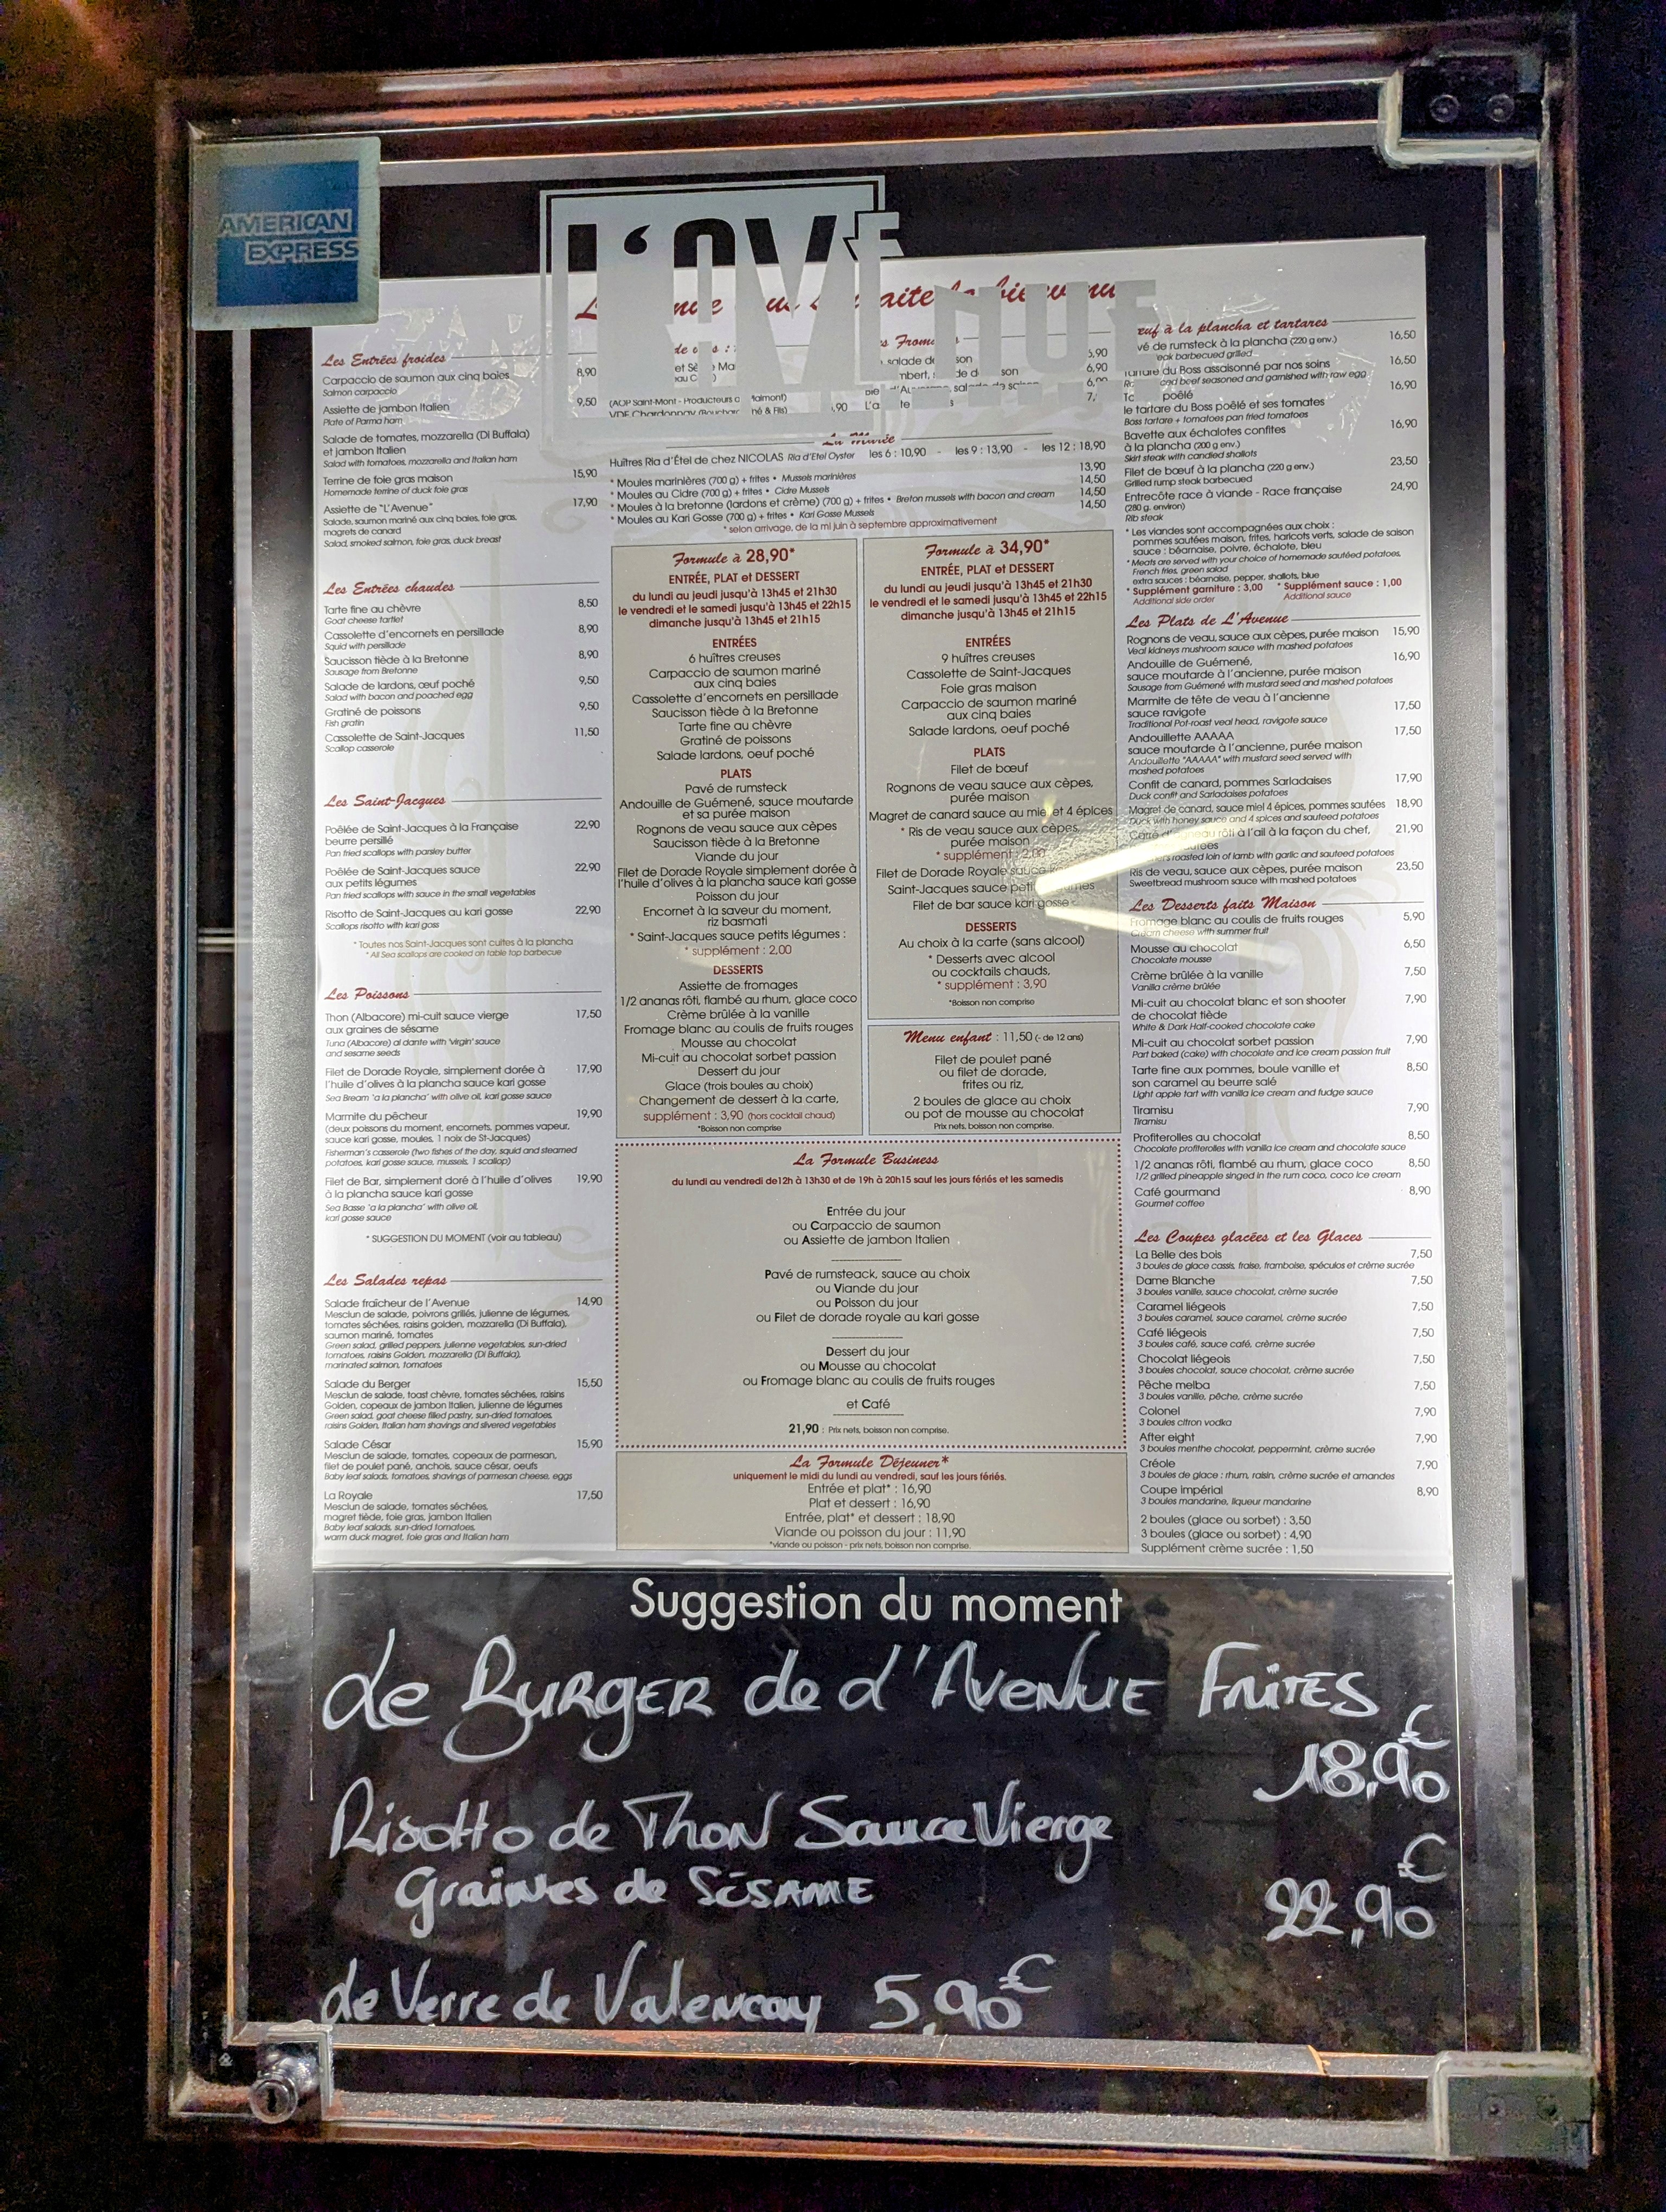 AMERICAN
EXPRESS
L'AVENUE
Les Entrées froides
Carpaccio de saumon aux cinq baies 8,90
Salmon carpaccio
Assiette de jambon Italien 9,50
Plate of Parma ham
Salade de tomates, mozzarella (Di Buffala)
et jambon Italien
Salad with tomatoes, mozzarella and Italian ham
Terrine de foie gras maison 15,90
Homemade terrine of duck foie gras
Assiette de "L'Avenue" 17,90
Salade, saumon mariné aux cinq baies, foie gras,
magrets de canard
Salad, smoked salmon, foie gras, duck breast
Les Entrées chaudes
Tarte fine au chèvre 8,50
Goat cheese tartlet
Cassolette d'encornets en persillade 8,90
Squid with persillade
Saucisson tiède à la Bretonne 8,90
Sausage from Bretonne
Salade de lardons, œuf poché 9,50
Salad with bacon and poached egg
Gratiné de poissons 9,50
Fish gratin
Cassolette de Saint-Jacques 11,50
Scallop casserole
Les Saint-Jacques
Poêlée de Saint-Jacques à la Française 22,90
beurre persillé
Pan fried scallops with parsley butter
Poêlée de Saint-Jacques sauce 22,90
aux petits légumes
Pan fried scallops with sauce in the small vegetables
Risotto de Saint-Jacques au kari gosse 22,90
Scallops risotto with kari goss
* Toutes nos Saint-Jacques sont cuites à la plancha
* All Sea scallops are cooked on table top barbecue
Les Poissons
Thon (Albacore) mi-cuit sauce vierge 17,50
aux graines de sésame
Tuna (Albacore) al dante with 'virgin' sauce
and sesame seeds
Filet de Dorade Royale, simplement dorée à 17,90
l'huile d'olives à la plancha sauce kari gosse
Sea Bream 'a la plancha' with olive oil, kari gosse sauce
Marmite du pêcheur 19,90
(deux poissons du moment, encornets, pommes vapeur,
sauce kari gosse, moules, 1 noix de St-Jacques)
Fisherman's casserole (two fishes of the day, squid and steamed
potatoes, kari gosse sauce, mussels, 1 scallop)
Filet de Bar, simplement doré à l'huile d'olives 19,90
à la plancha sauce kari gosse
Sea Basse 'a la plancha' with olive oil,
kari gosse sauce
* SUGGESTION DU MOMENT (voir au tableau)
Les Salades repas
Salade fraîcheur de l'Avenue 14,90
Mesclun de salade, poivrons grillés, julienne de légumes,
tomates séchées, raisins golden, mozzarella (Di Buffala),
saumon mariné, tomates
Green salad, grilled peppers, julienne vegetables, sun-dried
tomatoes, raisins Golden, mozzarella (Di Buffala),
marinated salmon, tomatoes
Salade du Berger 15,50
Mesclun de salade, toast chèvre, tomates séchées, raisins
Golden, copeaux de jambon Italien, julienne de légumes
Green salad, goat cheese filled pastry, sun-dried tomatoes,
raisins Golden, Italian ham shavings and slivered vegetables
Salade César 15,90
Mesclun de salade, tomates, copeaux de parmesan,
filet de poulet pané, anchois, sauce césar, oeufs
Baby leaf salads, tomatoes, shavings of parmesan cheese, eggs
La Royale 17,50
Mesclun de salade, tomates séchées,
magret tiède, foie gras, jambon Italien
Baby leaf salads, sun-dried tomatoes,
warm duck magret, foie gras and Italian ham
(AOP Saint-Mont - Producteurs
VDF Chardonnay
salade de son 5,90
6,90
Huîtres Ria d'Étel de chez NICOLAS Ria d'Etel Oyster les 6 : 10,90 - les 9 : 13,90 - les 12 : 18,90
* Moules marinières (700 g) + frites • Mussels marinières 13,90
* Moules au Cidre (700 g) + frites • Cidre Mussels 14,50
* Moules à la bretonne (lardons et crème) (700 g) + frites • Breton mussels with bacon and cream 14,50
* Moules au Kari Gosse (700 g) + frites • Kari Gosse Mussels 14,50
* selon arrivage, de la mi juin à septembre approximativement
Formule à 28,90*
ENTRÉE, PLAT et DESSERT
du lundi au jeudi jusqu'à 13h45 et 21h30
le vendredi et le samedi jusqu'à 13h45 et 22h15
dimanche jusqu'à 13h45 et 21h15
ENTRÉES
6 huîtres creuses
Carpaccio de saumon mariné
aux cinq baies
Cassolette d'encornets en persillade
Saucisson tiède à la Bretonne
Tarte fine au chèvre
Gratiné de poissons
Salade lardons, oeuf poché
PLATS
Pavé de rumsteck
Andouille de Guémené, sauce moutarde
et sa purée maison
Rognons de veau sauce aux cèpes
Saucisson tiède à la Bretonne
Viande du jour
Filet de Dorade Royale simplement dorée à
l'huile d'olives à la plancha sauce kari gosse
Poisson du jour
Encornet à la saveur du moment,
riz basmati
* Saint-Jacques sauce petits légumes :
* supplément : 2,00
DESSERTS
Assiette de fromages
1/2 ananas rôti, flambé au rhum, glace coco
Crème brûlée à la vanille
Fromage blanc au coulis de fruits rouges
Mousse au chocolat
Mi-cuit au chocolat sorbet passion
Dessert du jour
Glace (trois boules au choix)
Changement de dessert à la carte,
supplément : 3,90 (hors cocktail chaud)
*Boisson non comprise
Formule à 34,90*
ENTRÉE, PLAT et DESSERT
du lundi au jeudi jusqu'à 13h45 et 21h30
le vendredi et le samedi jusqu'à 13h45 et 22h15
dimanche jusqu'à 13h45 et 21h15
ENTRÉES
9 huîtres creuses
Cassolette de Saint-Jacques
Foie gras maison
Carpaccio de saumon mariné
aux cinq baies
Salade lardons, oeuf poché
PLATS
Filet de bœuf
Rognons de veau sauce aux cèpes,
purée maison
Magret de canard sauce au miel et 4 épices
* Ris de veau sauce aux cèpes,
purée maison
* supplément : 2,00
Filet de Dorade Royale sauce
Saint-Jacques sauce
Filet de bar sauce kari gosse
DESSERTS
Au choix à la carte (sans alcool)
* Desserts avec alcool
ou cocktails chauds,
* supplément : 3,90
*Boisson non comprise
Menu enfant : 11,50 (- de 12 ans)
Filet de poulet pané
ou filet de dorade,
frites ou riz,
2 boules de glace au choix
ou pot de mousse au chocolat
Prix nets, boisson non comprise.
La Formule Business
du lundi au vendredi de12h à 13h30 et de 19h à 20h15 sauf les jours fériés et les samedis
Entrée du jour
ou Carpaccio de saumon
ou Assiette de jambon Italien
Pavé de rumsteack, sauce au choix
ou Viande du jour
ou Poisson du jour
ou Filet de dorade royale au kari gosse
Dessert du jour
ou Mousse au chocolat
ou Fromage blanc au coulis de fruits rouges
et Café
21,90 : Prix nets, boisson non comprise.
La Formule Déjeuner*
uniquement le midi du lundi au vendredi, sauf les jours fériés.
Entrée et plat* : 16,90
Plat et dessert : 16,90
Entrée, plat* et dessert : 18,90
Viande ou poisson du jour : 11,90
*viande ou poisson - prix nets, boisson non comprise.
à la plancha et tartares
de rumsteck à la plancha (220 g env.) 16,50
barbecued grilled
du Boss assaisonné par nos soins 16,50
beef seasoned and garnished with raw egg
poêlé 16,90
le tartare du Boss poêlé et ses tomates
Boss tartare + tomatoes pan fried tomatoes
Bavette aux échalotes confites 16,90
à la plancha (200 g env.)
Skirt steak with candied shallots
Filet de bœuf à la plancha (220 g env.) 23,50
Grilled rump steak barbecued
Entrecôte race à viande - Race française 24,90
(280 g. environ)
Rib steak
* Les viandes sont accompagnées aux choix :
pommes sautées maison, frites, haricots verts, salade de saison
sauce : béarnaise, poivre, échalote, bleu
* Meats are served with your choice of homemade sautéed potatoes,
French fries, green salad
extra sauces : béarnaise, pepper, shallots, blue
* Supplément garniture : 3,00 * Supplément sauce : 1,00
Additional side order Additional sauce
Les Plats de L'Avenue
Rognons de veau, sauce aux cèpes, purée maison 15,90
Veal kidneys mushroom sauce with mashed potatoes
Andouille de Guémené, 16,90
sauce moutarde à l'ancienne, purée maison
Sausage from Guémené with mustard seed and mashed potatoes
Marmite de tête de veau à l'ancienne 17,50
sauce ravigote
Traditional Pot-roast veal head, ravigote sauce
Andouillette AAAAA 17,50
sauce moutarde à l'ancienne, purée maison
Andouillette "AAAAA" with mustard seed served with
mashed potatoes
Confit de canard, pommes Sarladaises 17,90
Duck confit and Sarladaises potatoes
Magret de canard, sauce miel 4 épices, pommes sautées 18,90
Duck with honey sauce and 4 spices and sauteed potatoes
Carré d'agneau rôti à l'ail à la façon du chef, 21,90
roasted loin of lamb with garlic and sauteed potatoes
Ris de veau, sauce aux cèpes, purée maison 23,50
Sweetbread mushroom sauce with mashed potatoes
Les Desserts faits Maison
Fromage blanc au coulis de fruits rouges 5,90
Cream cheese with summer fruit
Mousse au chocolat 6,50
Chocolate mousse
Crème brûlée à la vanille 7,50
Vanilla crème brûlée
Mi-cuit au chocolat blanc et son shooter 7,90
de chocolat tiède
White & Dark Half-cooked chocolate cake
Mi-cuit au chocolat sorbet passion 7,90
Part baked (cake) with chocolate and ice cream passion fruit
Tarte fine aux pommes, boule vanille et 8,50
son caramel au beurre salé
Light apple tart with vanilla ice cream and fudge sauce
Tiramisu 7,90
Tiramisu
Profiterolles au chocolat 8,50
Chocolate profiterolles with vanilla ice cream and chocolate sauce
1/2 ananas rôti, flambé au rhum, glace coco 8,50
1/2 grilled pineapple singed in the rum coco, coco ice cream
Café gourmand 8,90
Gourmet coffee
Les Coupes glacées et les Glaces
La Belle des bois 7,50
3 boules de glace cassis, fraise, framboise, spéculos et crème sucrée
Dame Blanche 7,50
3 boules vanille, sauce chocolat, crème sucrée
Caramel liégeois 7,50
3 boules caramel, sauce caramel, crème sucrée
Café liégeois 7,50
3 boules café, sauce café, crème sucrée
Chocolat liégeois 7,50
3 boules chocolat, sauce chocolat, crème sucrée
Pêche melba 7,50
3 boules vanille, pêche, crème sucrée
Colonel 7,90
3 boules citron vodka
After eight 7,90
3 boules menthe chocolat, peppermint, crème sucrée
Créole 7,90
3 boules de glace : rhum, raisin, crème sucrée et amandes
Coupe impérial 8,90
3 boules mandarine, liqueur mandarine
2 boules (glace ou sorbet) : 3,50
3 boules (glace ou sorbet) : 4,90
Supplément crème sucrée : 1,50
Suggestion du moment
Le BURGER de L'AVENUE FRITES
18,90 €
Risotto de THON Sauce Vierge
Graines de SÉSAME 22,90 €
Le Verre de Valencay 5,90€